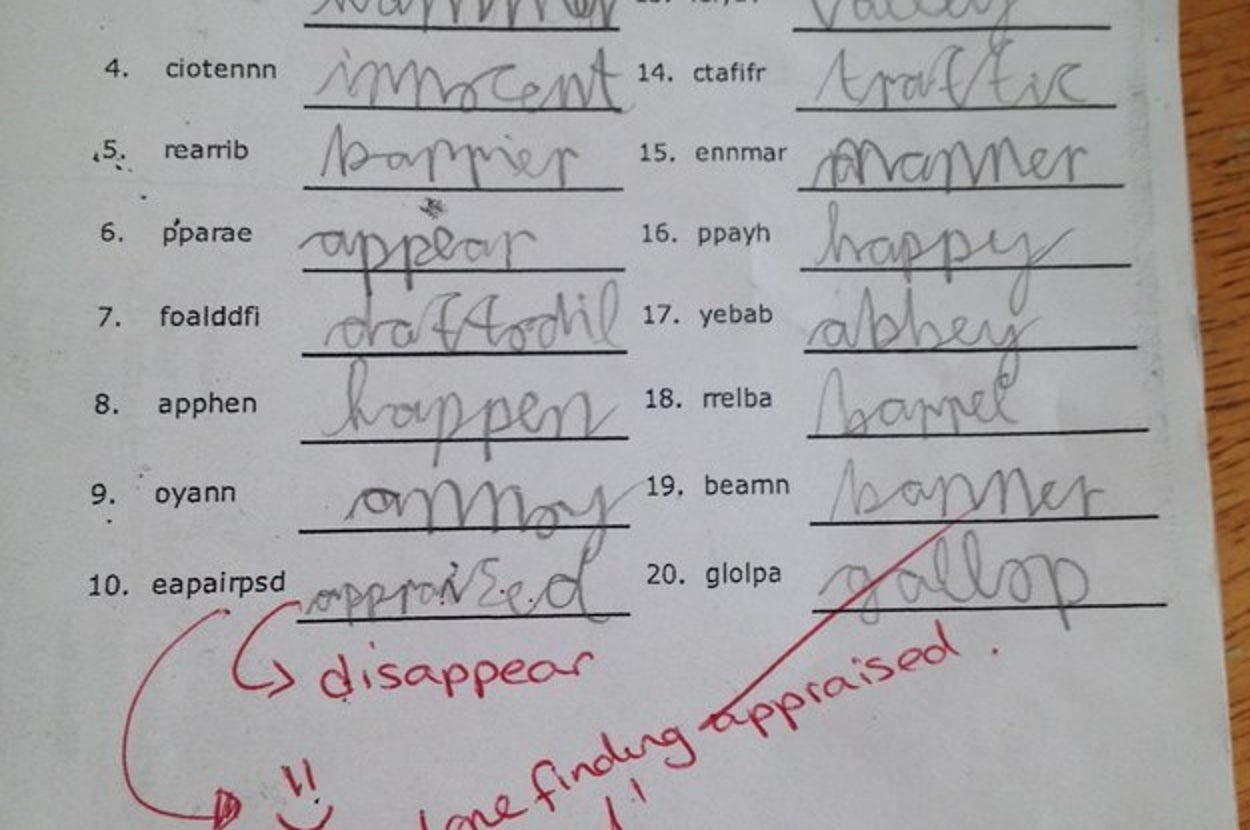 valley
4. ciotennn innocent 14. ctafifr traffic
5. rearrib barrier 15. ennmar manner
6. pparae appear 16. ppayh happy
7. foalddfi daffodil 17. yebab abbey
8. apphen happen 18. rrelba barrel
9. oyann annoy 19. bearnn banner
10. eapairpsd appraised 20. glolpa gallop
disappear
finding appraised.